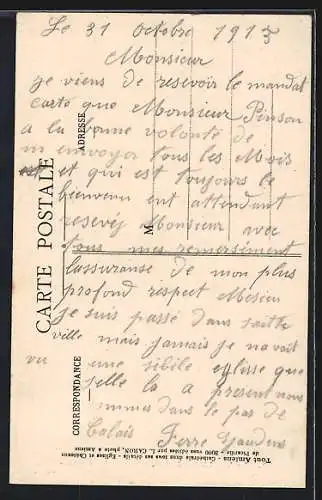 Le 31 Octobre 1913
Monsieur
je viens de resevoir le mandat
carto que Monsieur Pinson
a la bonne volonté de
m envoyor tous les Mois
et qui est toujours le
bienvenu ent attendant
resevéz Monsieur avec
tous mes remersément
lassuranse de mon plus
profond respect Mesieu
je suis passé dans saitte
ville mais jamais je na vait
vu une sibéle eglisse que
selle la a present nous
sommes dans le pas de
Calais Ferre
CARTE POSTALE
ADRESSE
M
CORRESPONDANCE
Tout Amiens - Cathédrale dans tous ses détails - Eglises et Châteaux
de Picardie - 3000 vues éditées par L. CARON, photo à Amiens